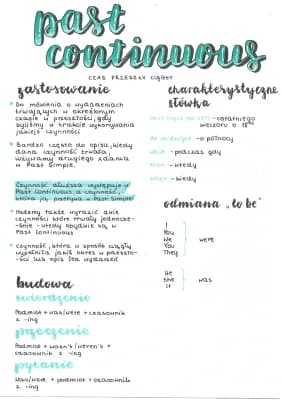 past
continuous
CZAS PRZESZŁY CIĄGŁY
zastosowanie
Do mówienia o wydarzeniach
trwających w określonym
czasie w przeszłości, gdy
byliśmy w trakcie wykonywania
jakiejś czynności
Bardzo często do opisu, kiedy
dana czynność trwała,
używamy drugiego zdania
w Past Simple.
Czynność dłuższa występuje w
Past Continuous a czynność,
która ją przerywa w Past Simple
Możemy także wyrazić dwie
czynności które trwały jednocze-
śnie - wtedy obydwie są w
Past Continuous
czynność, która w sposób ciągły
wypełniła jakiś okres w przeszło-
ści lub opis tła wydarzeń
budowa
twierdzenie
Podmiot + was/were + czasownik
z -ing
przeczenie
Podmiot + wasn't/weren't +
czasownik z -ing
pytanie
Was/were + podmiot + czasownik
z -ing
charakterystyczne
słówka
- ostatniego
wieczoru o 18
at midnight - o północy
while - podczas gdy
then - wtedy
when - kiedy
odmiana „to be"
I
You
We
You
They
were
He
She
It
was